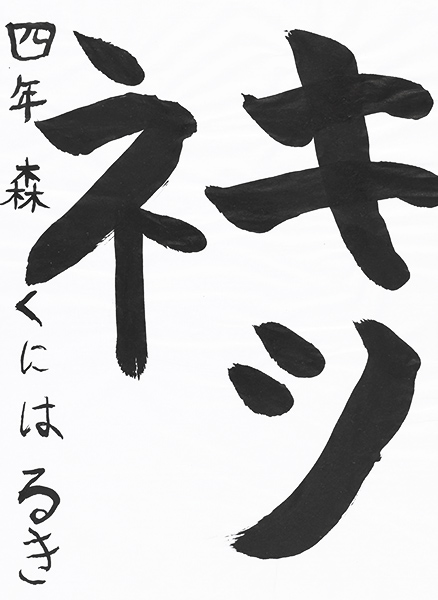 キツ
ネ
四年 森 くにはるき